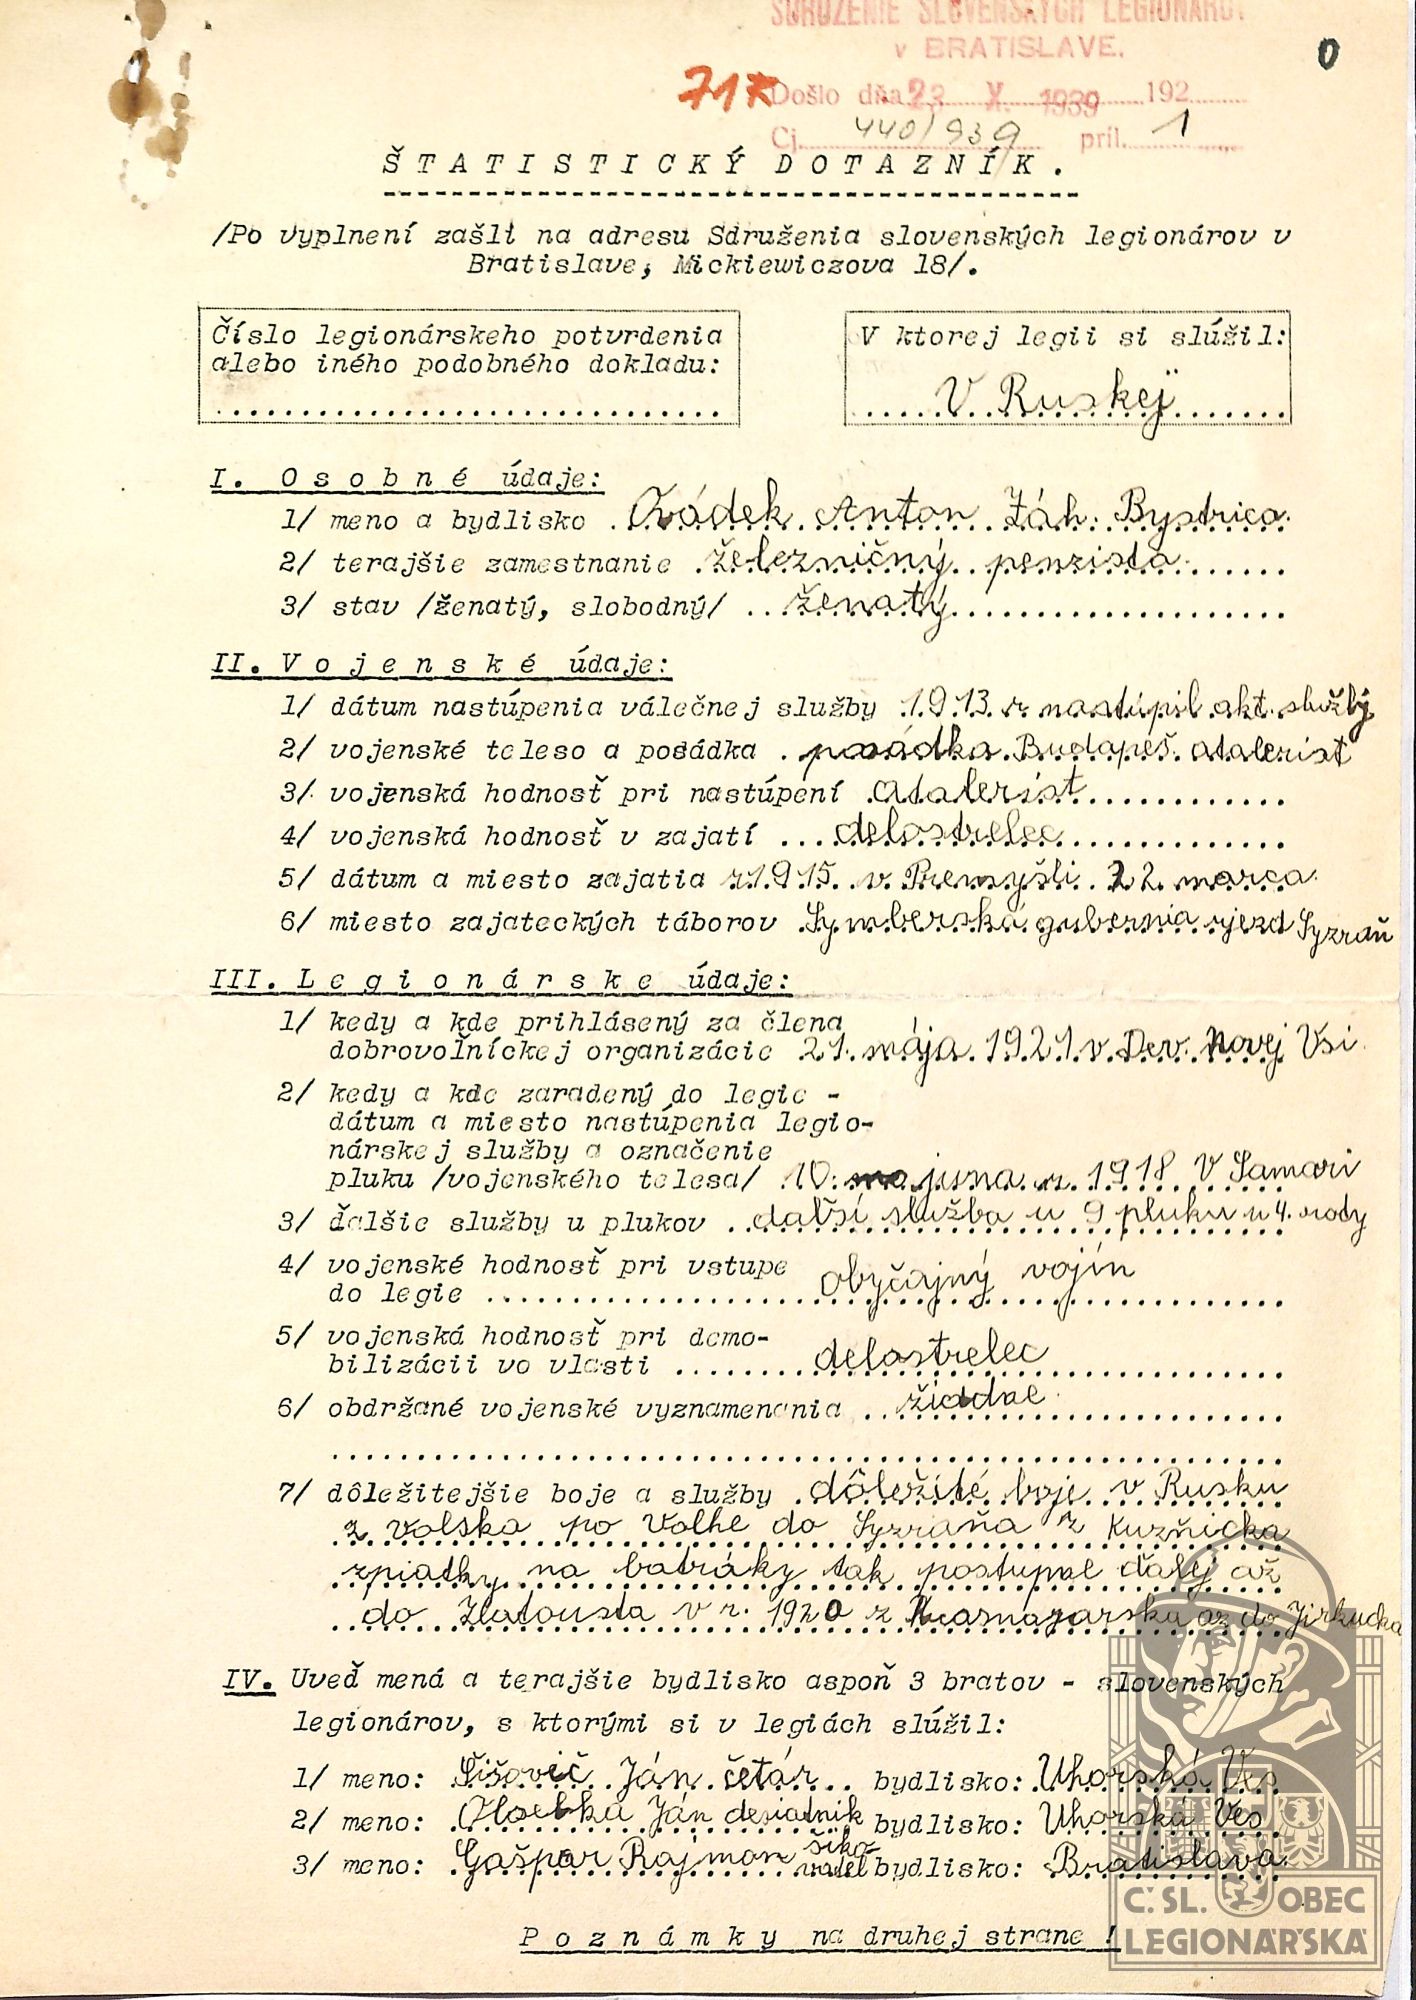 SDRUŽENIE SLOVENSKÝCH LEGIONÁROV
v BRATISLAVE.
0
717 Došlo dňa 23 X. 1939 192
Čj. 440/939 príl. 1
ŠTATISTICKÝ DOTAZNÍK.
/Po vyplnení zašli na adresu Sdruženia slovenských legionárov v
Bratislave, Mickiewiczova 18/.
Číslo legionárskeho potvrdenia
alebo iného podobného dokladu:
V ktorej legii si slúžil:
V Ruskej
I. Osobné údaje:
1/ meno a bydlisko Ovádek Anton Záh. Bystrica
2/ terajšie zamestnanie železničný penzista
3/ stav /ženatý, slobodný/ ženatý
II. Vojenské údaje:
1/ dátum nastúpenia válečnej služby 1913 r nastúpil akt. služby
2/ vojenské teleso a posádka posádka Budapéš. atalerist
3/ vojenská hodnosť pri nastúpení atalerist
4/ vojenská hodnosť v zajatí delostrelec
5/ dátum a miesto zajatia r 1915 v Premyšli 22 marca
6/ miesto zajateckých táborov Symberská gubernia ujezd Syzraň
III. Legionárske údaje:
1/ kedy a kde prihlásený za člena
dobrovoľníckej organizácie 21. mája 1921 v Dev. Novej Vsi
2/ kedy a kde zaradený do legie -
dátum a miesto nastúpenia legio-
nárskej služby a označenie
pluku /vojenského telesa/ 10. juna r. 1918 V Samari
3/ ďalšie služby u plukov ďalší služba u 9 pluku u 4. rody
4/ vojenské hodnosť pri vstupe
do legie obyčajný vojín
5/ vojenská hodnosť pri demo-
bilizácii vo vlasti delostrelec
6/ obdržané vojenské vyznamenania žiadne
7/ dôležitejšie boje a služby dôležité boje v Rusku
z Volska po Volhe do Syzraňa z Kuzňicka
zpiatky na batráky tak postupne ďalej až
do Zlatousta v r. 1920 z Krasnajarska až do Jirkucka
IV. Uveď mená a terajšie bydlisko aspoň 3 bratov - slovenských
legionárov, s ktorými si v legiách slúžil:
1/ meno: Šišovič Ján četár bydlisko: Uhorská Ves
2/ meno: Ján desiatnik bydlisko: Uhorská Ves
3/ meno: Gašpar Rajmon šikovatel bydlisko: Bratislava
Poznámky na druhej strane !
Č.SL. OBEC
LEGIONÁŘSKÁ